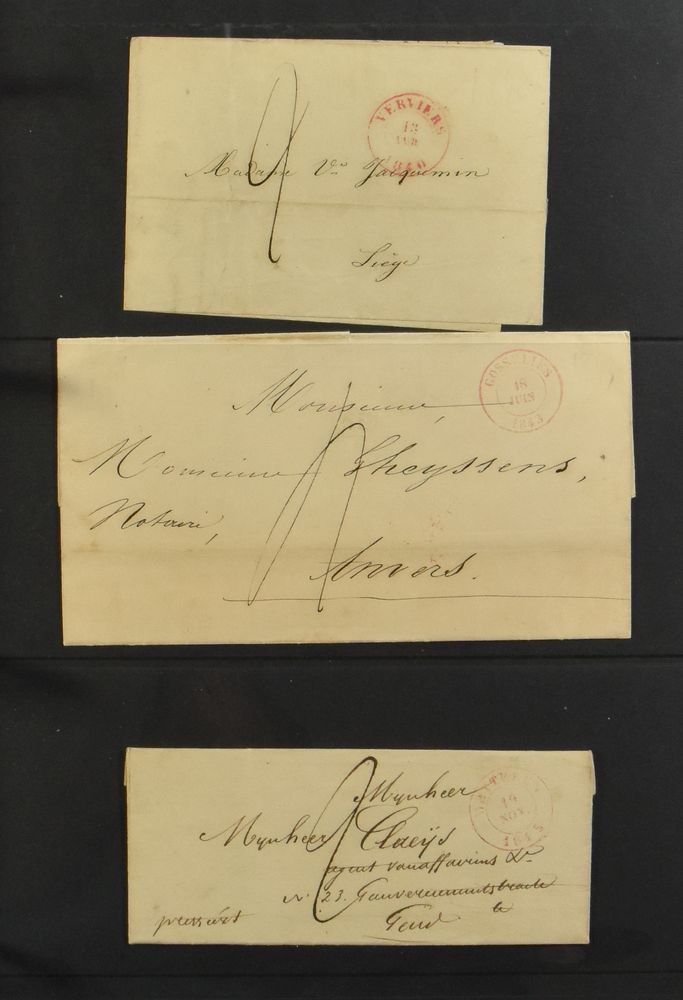 VERVIERS
12
1840
Madame Ve Jacquemin
Liége
GOSSELIES
18
JUIN
1843
Monsieur,
Monsieur Gheyssens,
Notaire,
Anvers.
19
NOV.
1845
Mynheer
Mynheer Claeÿs
agent
N. 23. Gouvernementstraete
te
Gend